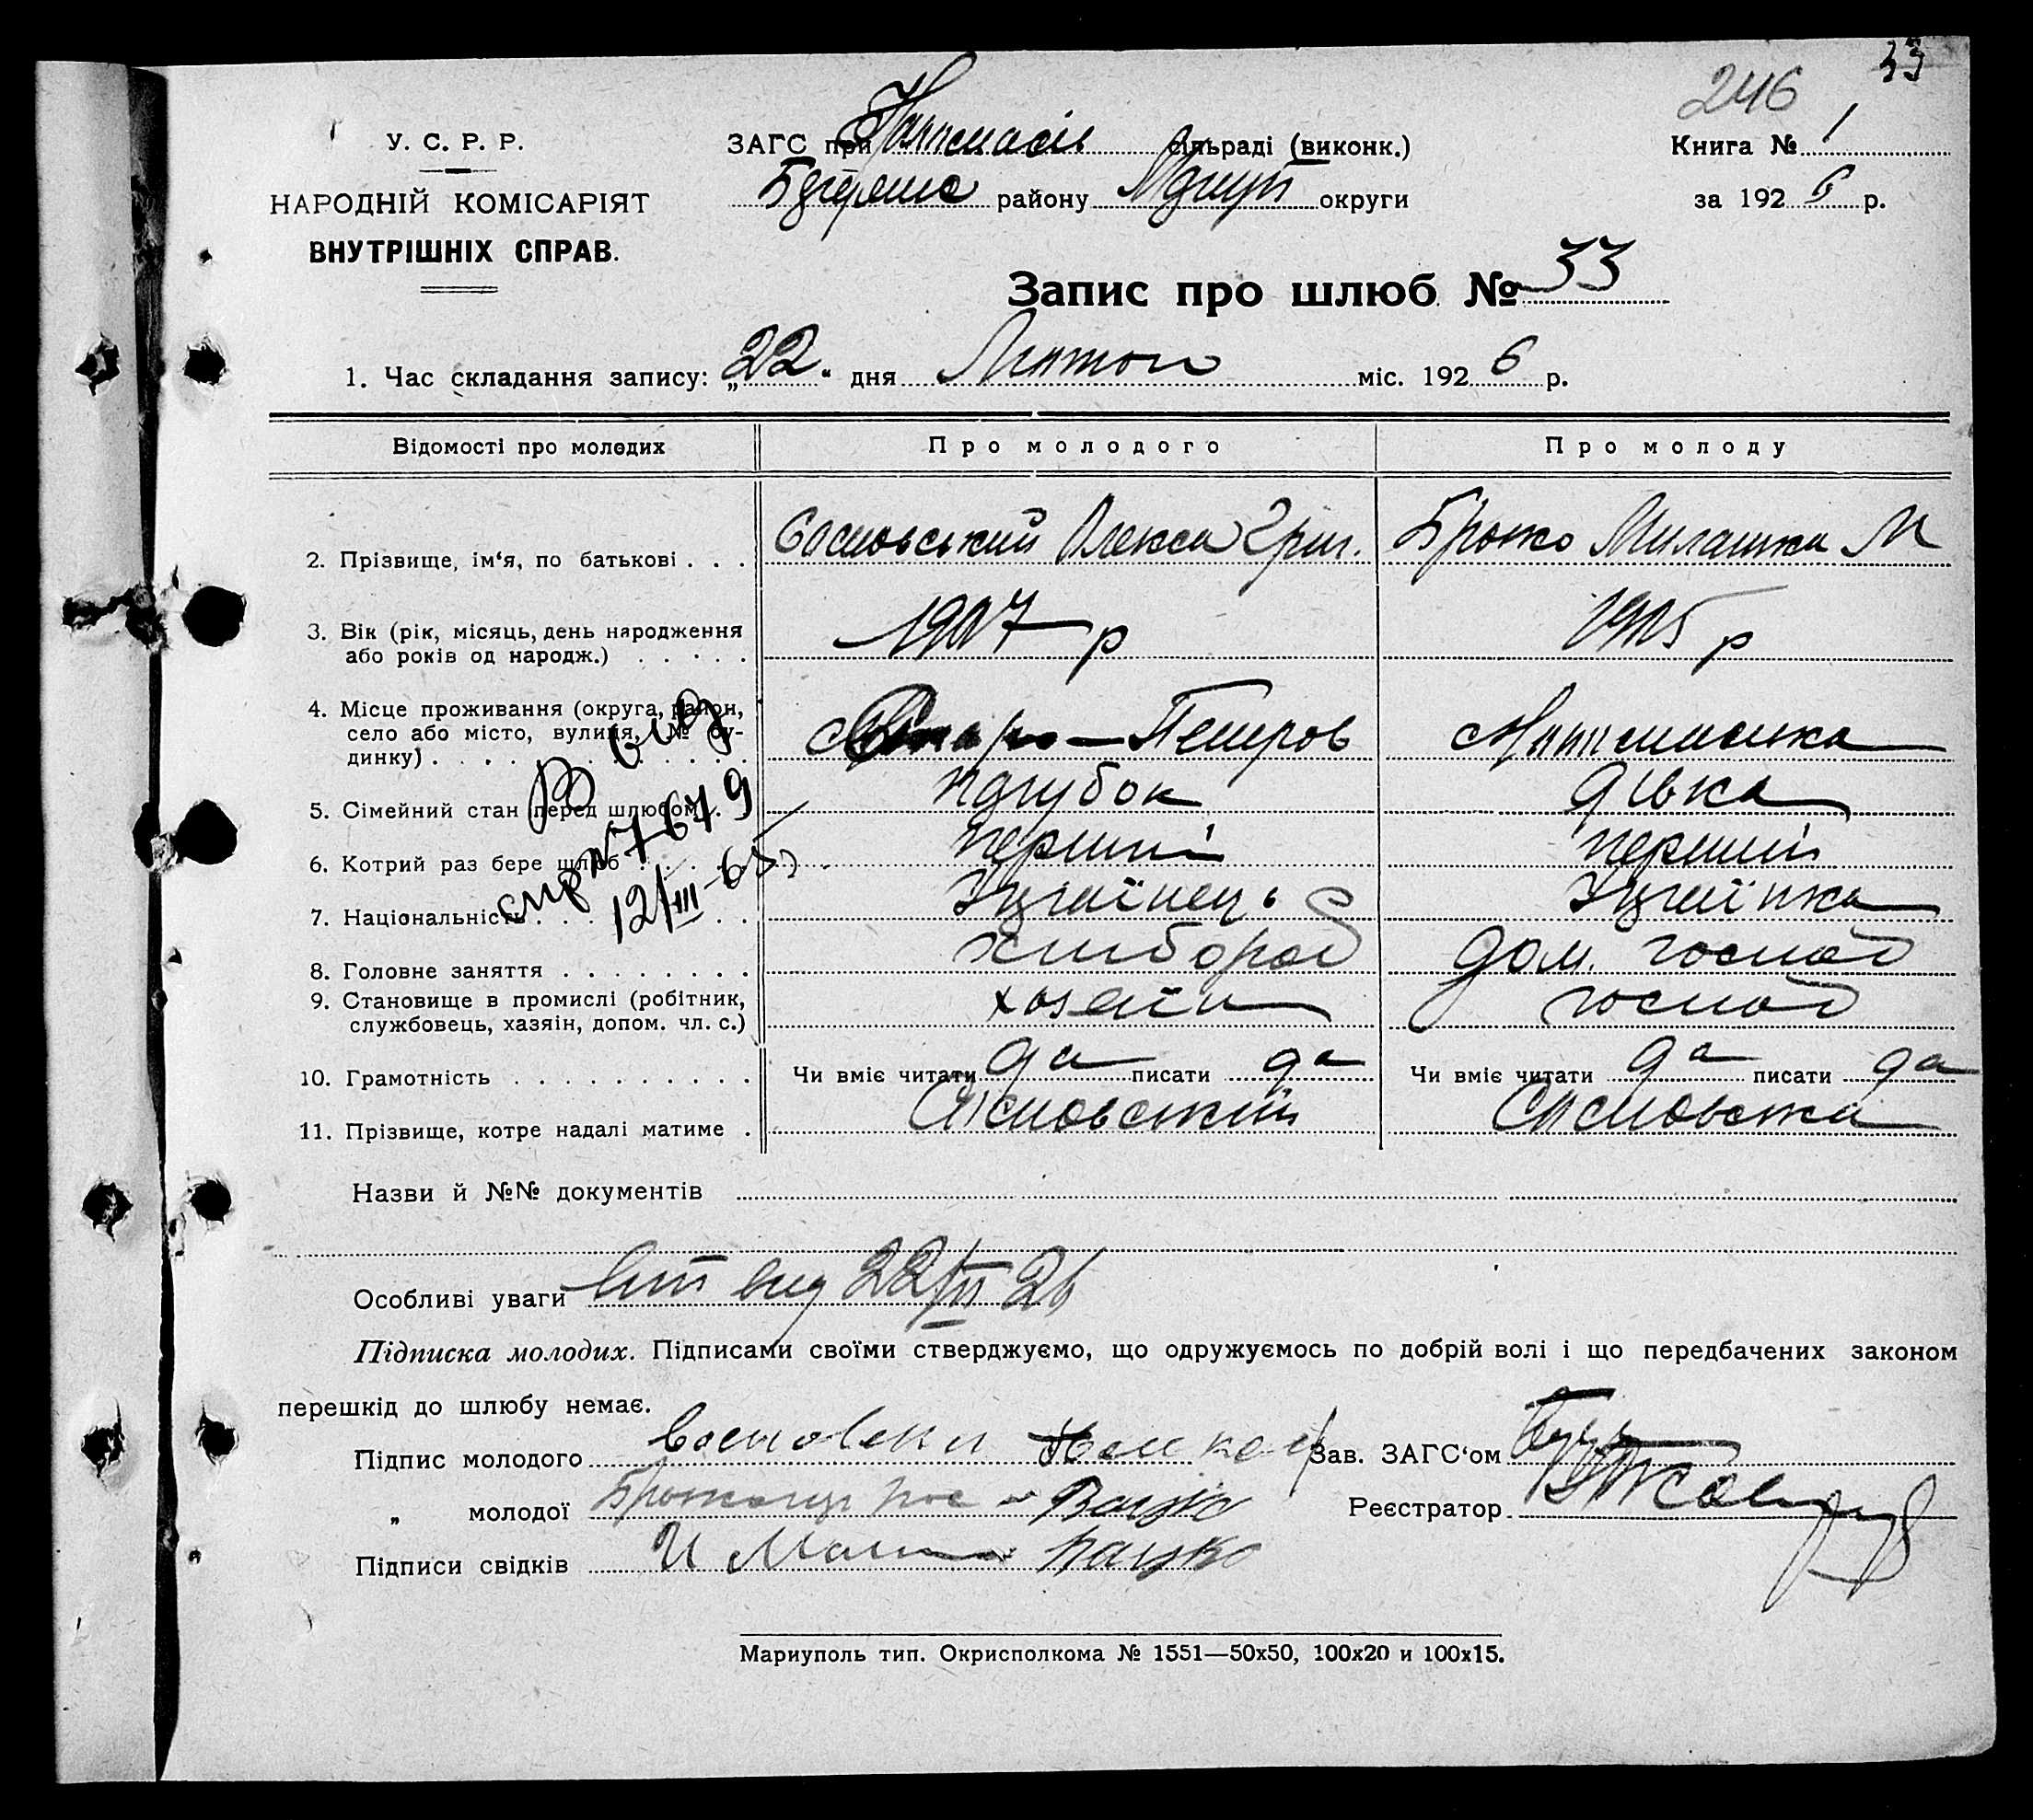 33
246
У. С. Р. Р.
НАРОДНІЙ КОМІСАРІЯТ
ВНУТРІШНІХ СПРАВ.
ЗАГС при сільраді (виконк.)
району округи
Книга № 1
за 192 6 р.
Запис про шлюб № 33
1. Час складання запису: „22" дня Лютого міс. 192 6 р.
Відомості про молодих
Про молодого
Про молоду
2. Прізвище, ім‘я, по батькові . . . Сосновський Олекса Григ. Милашка М
3. Вік (рік, місяць, день народження
або років од народж.) . . . . . 1907 р 1905 р
4. Місце проживання (округа, район,
село або місто, вулиця, № бу-
динку) . . . Старо-Петров
5. Сімейний стан перед шлюбом . . парубок дівка
6. Котрий раз бере шлюб . . . перший перший
7. Національність . . . Українець Українка
8. Головне заняття . . . . . . . . хлібороб дом. господ
9. Становище в промислі (робітник,
службовець, хазяін, допом. чл. с.) хозяїн господ
10. Грамотність . . . . . . . . . . Чи вміє читати да писати да Чи вміє читати да писати да
11. Прізвище, котре надалі матиме . Сосновський Сосновська
12/III-65
Назви й №№ документів
Особливі уваги вид 22/II 26
Підписка молодих. Підписами своїми стверджуємо, що одружуємось по добрій волі і що передбачених законом
перешкід до шлюбу немає.
Підпис молодого Зав. ЗАГС‘ом
„ молодої Реєстратор
Підписи свідків
Мариуполь тип. Окрисполкома № 1551—50х50, 100х20 и 100х15.